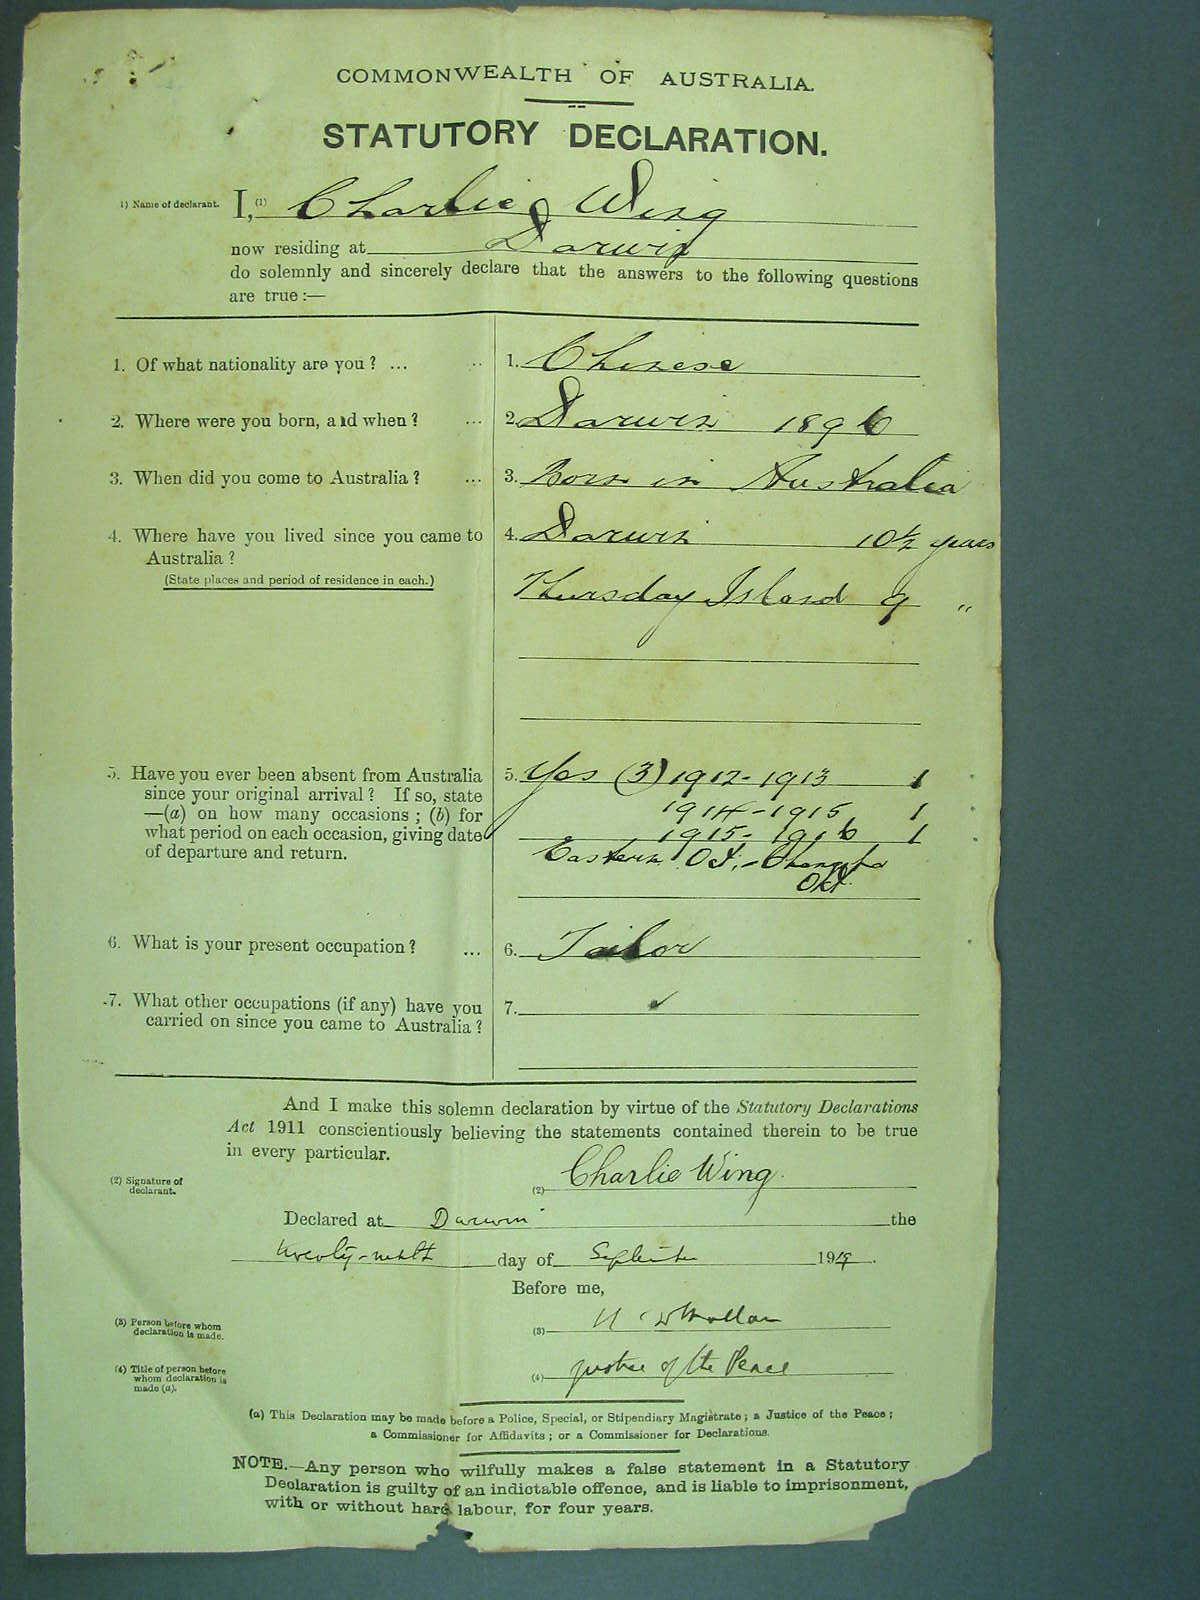 COMMONWEALTH OF AUSTRALIA.
STATUTORY DECLARATION.
1) Name of declarant. I, (1) Charlie Wing
now residing at Darwin
do solemnly and sincerely declare that the answers to the following questions
are true :—
1. Of what nationality are you ? ... .. 1. Chinese
2. Where were you born, and when ? ... 2. Darwin 1896
3. When did you come to Australia ? ... 3. Born in Australia
4. Where have you lived since you came to 4. Darwin 10½ years
Australia ?
(State places and period of residence in each.)
Thursday Island 9 "
5. Have you ever been absent from Australia 5. Yes (3) 1912-1913 1
since your original arrival ? If so, state
—(a) on how many occasions ; (b) for 1914-1915 1
what period on each occasion, giving date 1915-1916 1
of departure and return. Eastern
6. What is your present occupation ? ... 6. Tailor
7. What other occupations (if any) have you 7.
carried on since you came to Australia ?
And I make this solemn declaration by virtue of the Statutory Declarations
Act 1911 conscientiously believing the statements contained therein to be true
in every particular.
(2) Signature of
declarant.
(2) Charlie Wing
Declared at Darwin the
day of September 1919.
Before me,
(3) Person before whom
declaration is made.
(3)
(4) Title of person before
whom declaration is
made (a).
(4) Justice of the Peace
(a) This Declaration may be made before a Police, Special, or Stipendiary Magistrate ; a Justice of the Peace ;
a Commissioner for Affidavits ; or a Commissioner for Declarations.
NOTE.—Any person who wilfully makes a false statement in a Statutory
Declaration is guilty of an indictable offence, and is liable to imprisonment,
with or without hard labour, for four years.